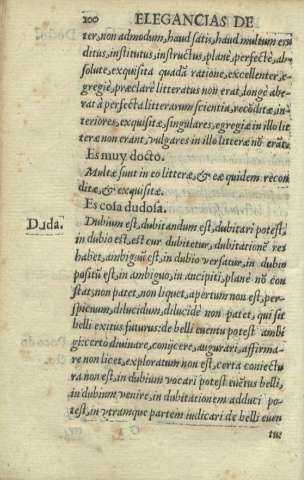 200 ELEGANCIAS DE
ter, non admodum, haud satis, haud multum eru
ditus, institutus, instructus, planè, perfectè, ab-
solute, exquisita quadã ratione, excellenter, e-
gregiè, præclarè litteratus non erat, longè abe-
rat à perfecta litterarum scientia, recõditæ, in-
teriores, exquisitæ, singulares, egregiæ in illo lit
teræ non erant, vulgares in illo litteræ nõ erãt.
Es muy docto.
Multæ sunt in eo litteræ, & eæ quidem recon
ditæ, & exquisitæ.
Es cosa dudosa.
Duda.
Dubium est, dubitandum est, dubitari potest,
in dubio est, est cur dubitetur, dubitationẽ res
habet, ambiguũ est, in dubio versatur, in dubio
positũ est, in ambiguo, in ancipiti, planè nõ con
stat, non patet, non liquet, apertum non est, per-
spicuum, dilucidum, dilucidè non patet, qui sit
belli exitus futurus: de belli euentu potest ambi
gi: certò diuinare, conijcere, augurari, affirma-
re non licet, exploratum non est, certa coniectu
ra non est, in dubium vocari potest euẽtus belli,
in dubium venire, in dubitationem adduci po-
test, in vtramque partem iudicari de belli euen
tu